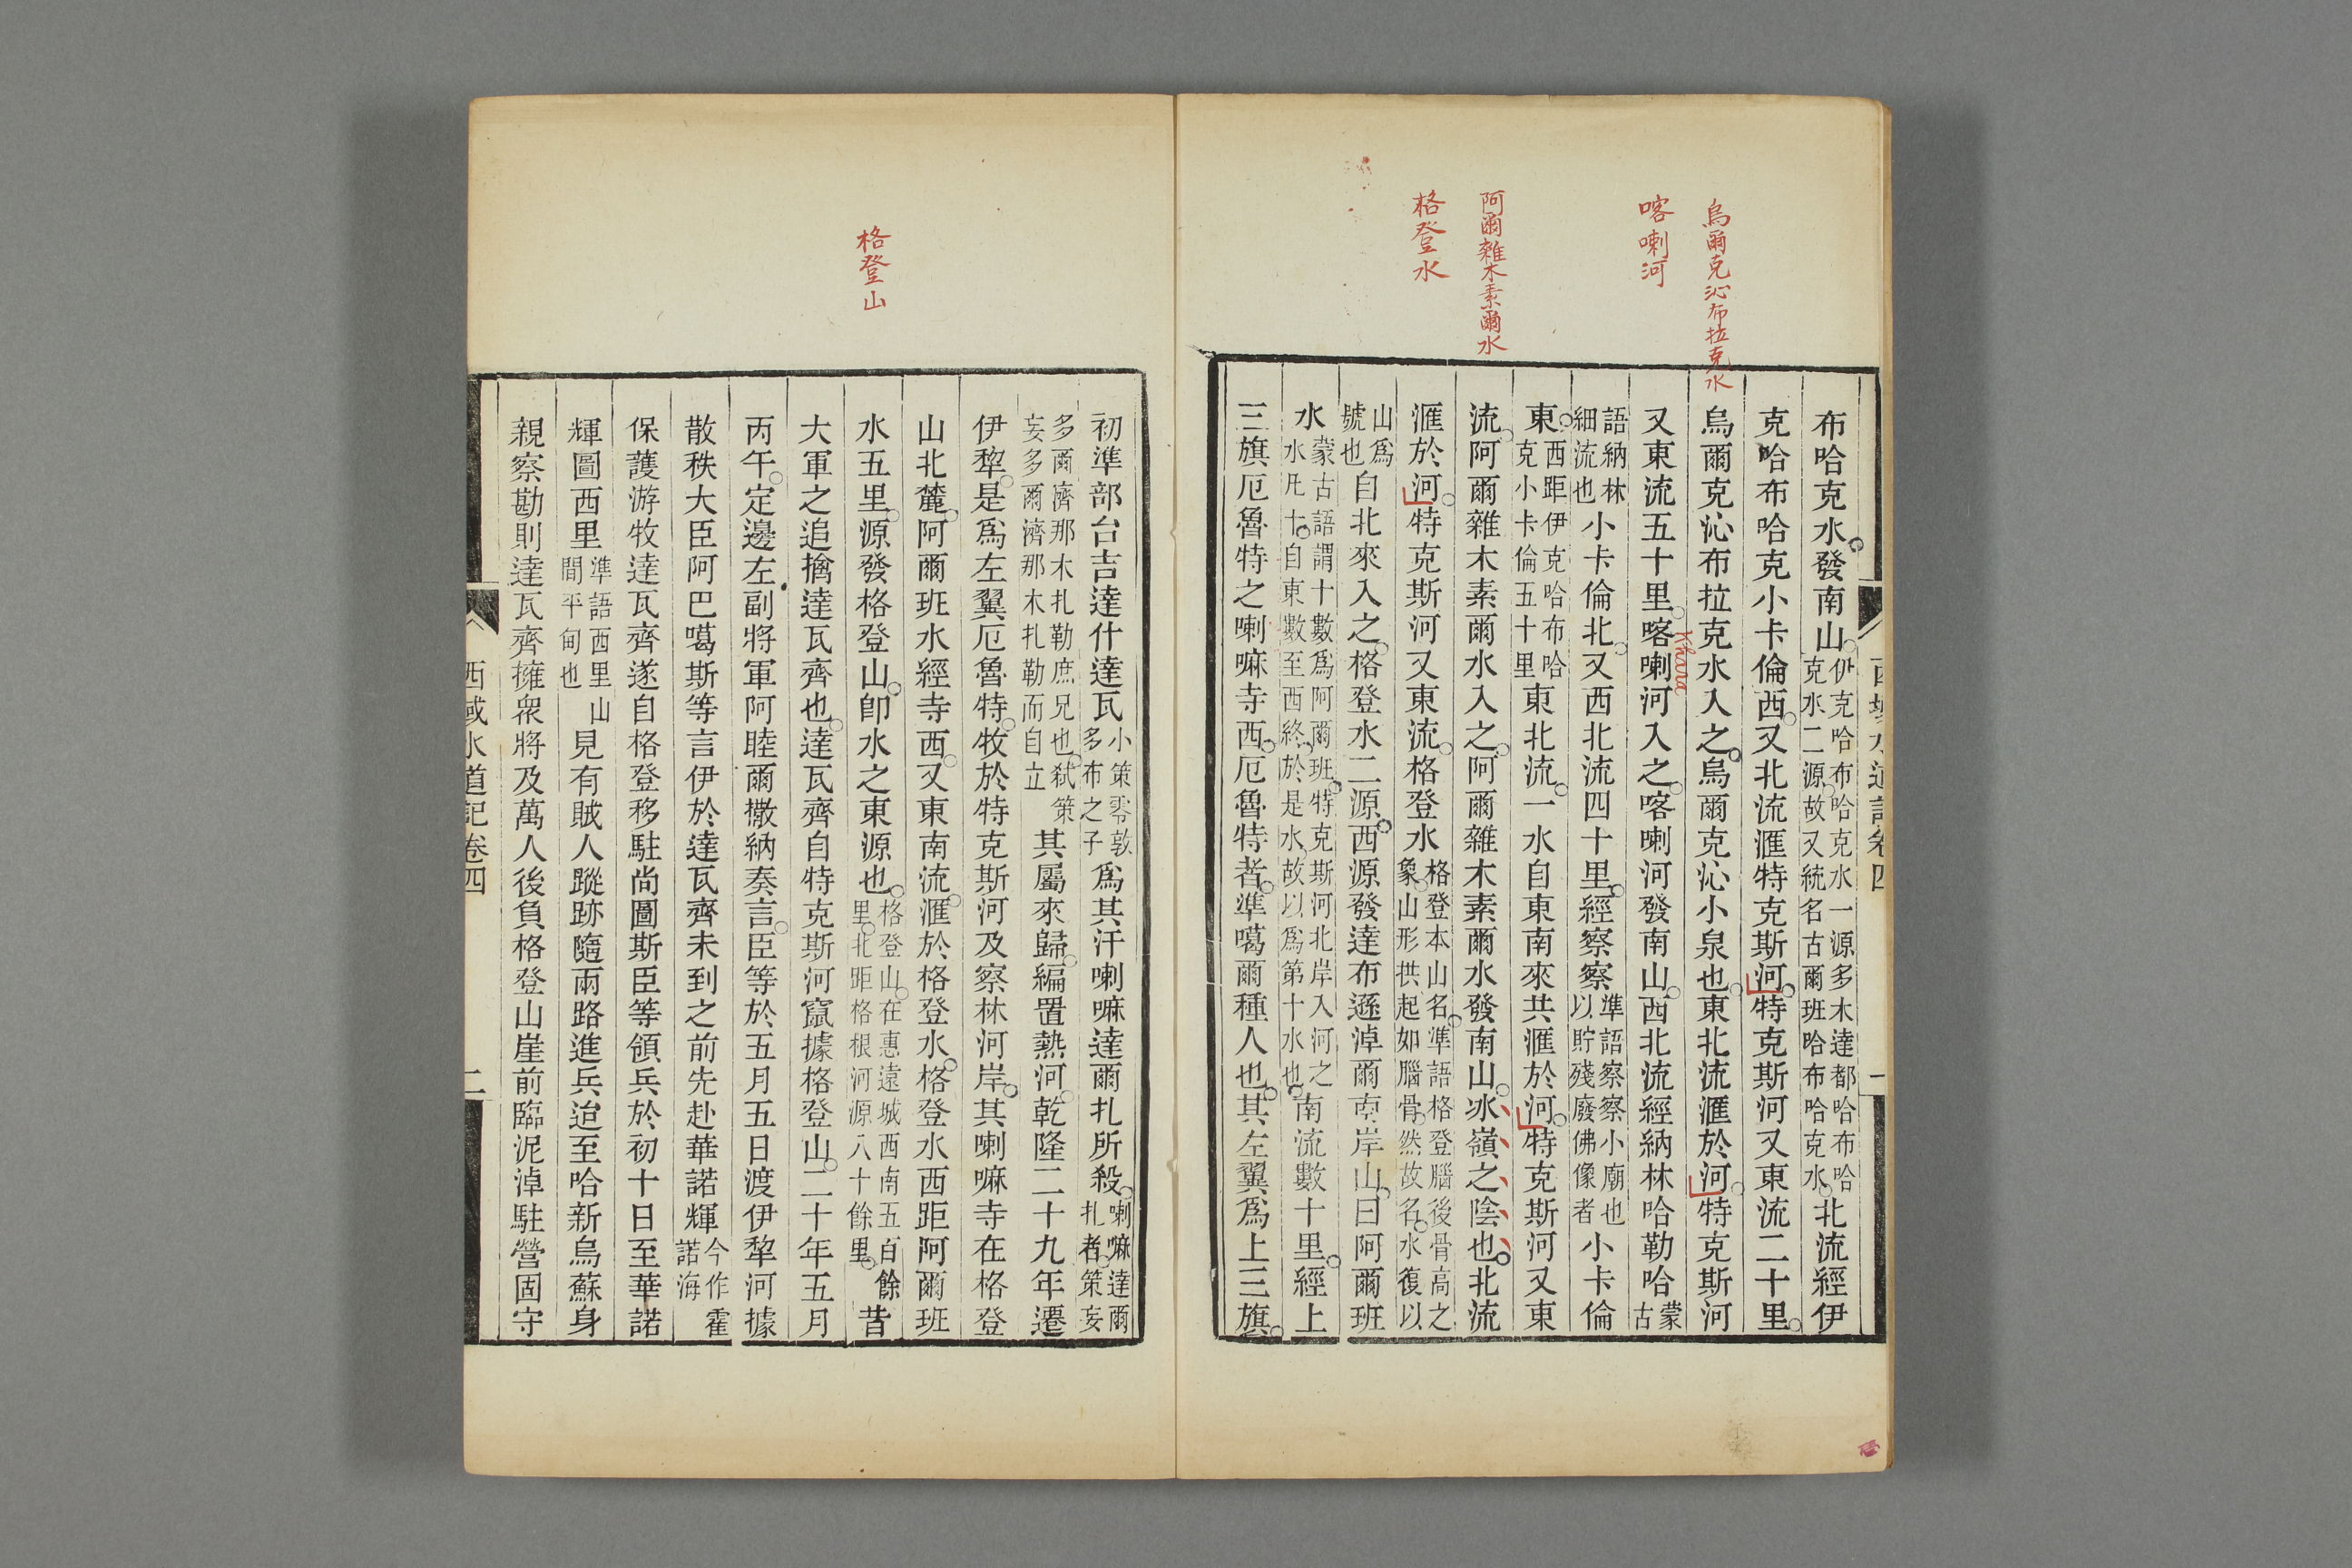 烏爾克沁布拉克水
喀喇河
阿爾雜木素爾水
格登水
西域水道記卷四
一
布哈克水發南山伊克哈布哈克水一源多木達都哈布哈克水二源故又統名古爾班哈布哈克水北流經伊
克哈布哈克小卡倫西又北流滙特克斯河特克斯河又東流二十里
烏爾克沁布拉克水入之烏爾克沁小泉也東北流滙於河特克斯河
又東流五十里喀喇河入之喀喇河發南山西北流經納林哈勒哈蒙古
Khara
語納林細流也小卡倫北又西北流四十里經察察準語察察小廟也以貯殘廢佛像者小卡倫
東西距伊克哈布哈克小卡倫五十里東北流一水自東南來共滙於河特克斯河又東
流阿爾雜木素爾水入之阿爾雜木素爾水發南山冰嶺之陰也北流
滙於河特克斯河又東流格登水格登本山名準語格登腦後骨高之象山形拱起如腦骨然故名水復以
山爲號也自北來入之格登水二源西源發達布遜淖爾南岸山曰阿爾班
水蒙古語謂十數爲阿爾班特克斯河北岸入河之水凡十自東數至西終於是水故以爲第十水也南流數十里經上
三旗厄魯特之喇嘛寺西厄魯特者準噶爾種人也其左翼爲上三旗
格登山
初準部台吉達什達瓦小策零敦多布之子爲其汗喇嘛達爾扎所殺喇嘛達爾扎者策妄
多爾濟那木扎勒庶兄也弒策妄多爾濟那木扎勒而自立其屬來歸編置熱河乾隆二十九年遷
伊犂是爲左翼厄魯特牧於特克斯河及察林河岸其喇嘛寺在格登
山北麓阿爾班水經寺西又東南流滙於格登水格登水西距阿爾班
水五里源發格登山卽水之東源也格登山在惠遠城西南五百餘里北距格根河源八十餘里昔
大軍之追擒達瓦齊也達瓦齊自特克斯河竄據格登山二十年五月
丙午定邊左副將軍阿睦爾撒納奏言臣等於五月五日渡伊犂河據
散秩大臣阿巴噶斯等言伊於達瓦齊未到之前先赴華諾輝今作霍諾海
保護游牧達瓦齊遂自格登移駐尚圖斯臣等領兵於初十日至華諾
輝圖西里準語西里山間平甸也見有賊人蹤跡隨兩路進兵迫至哈新烏蘇身
親察勘則達瓦齊擁衆將及萬人後負格登山崖前臨泥淖駐營固守
西域水道記卷四
二